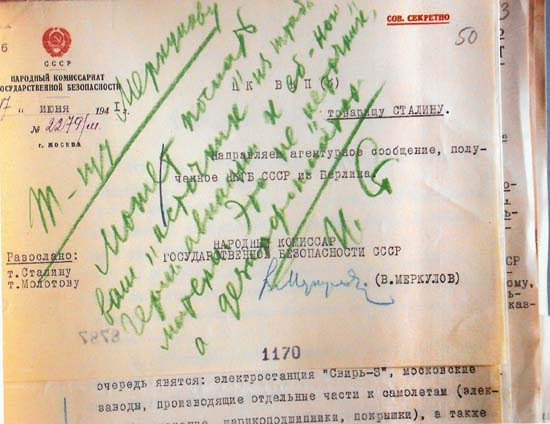 СОВ. СЕКРЕТНО
50
СССР
НАРОДНЫЙ КОМИССАРИАТ
ГОСУДАРСТВЕННОЙ БЕЗОПАСНОСТИ
17 " июня 1941 г.
№ 2279/м
г. МОСКВА
ЦК ВКП(б)
товарищу СТАЛИНУ.
Направляем агентурное сообщение, полу-
ченное НКГБ СССР из Берлина.
Т-щу Меркулову
Может послать
ваш "источник" из штаба
герм. авиации к еб-ной
матери. Это не "источник",
а дезинформатор.
И. Ст.
НАРОДНЫЙ КОМИССАР
ГОСУДАРСТВЕННОЙ БЕЗОПАСНОСТИ СССР
(В.МЕРКУЛОВ)
Разослано:
т.Сталину
т.Молотову
1170
очередь явятся: электростанция "Свирь-3", московские
заводы, производящие отдельные части к самолетам (элек-
шарикоподшипники, покрышки), а также